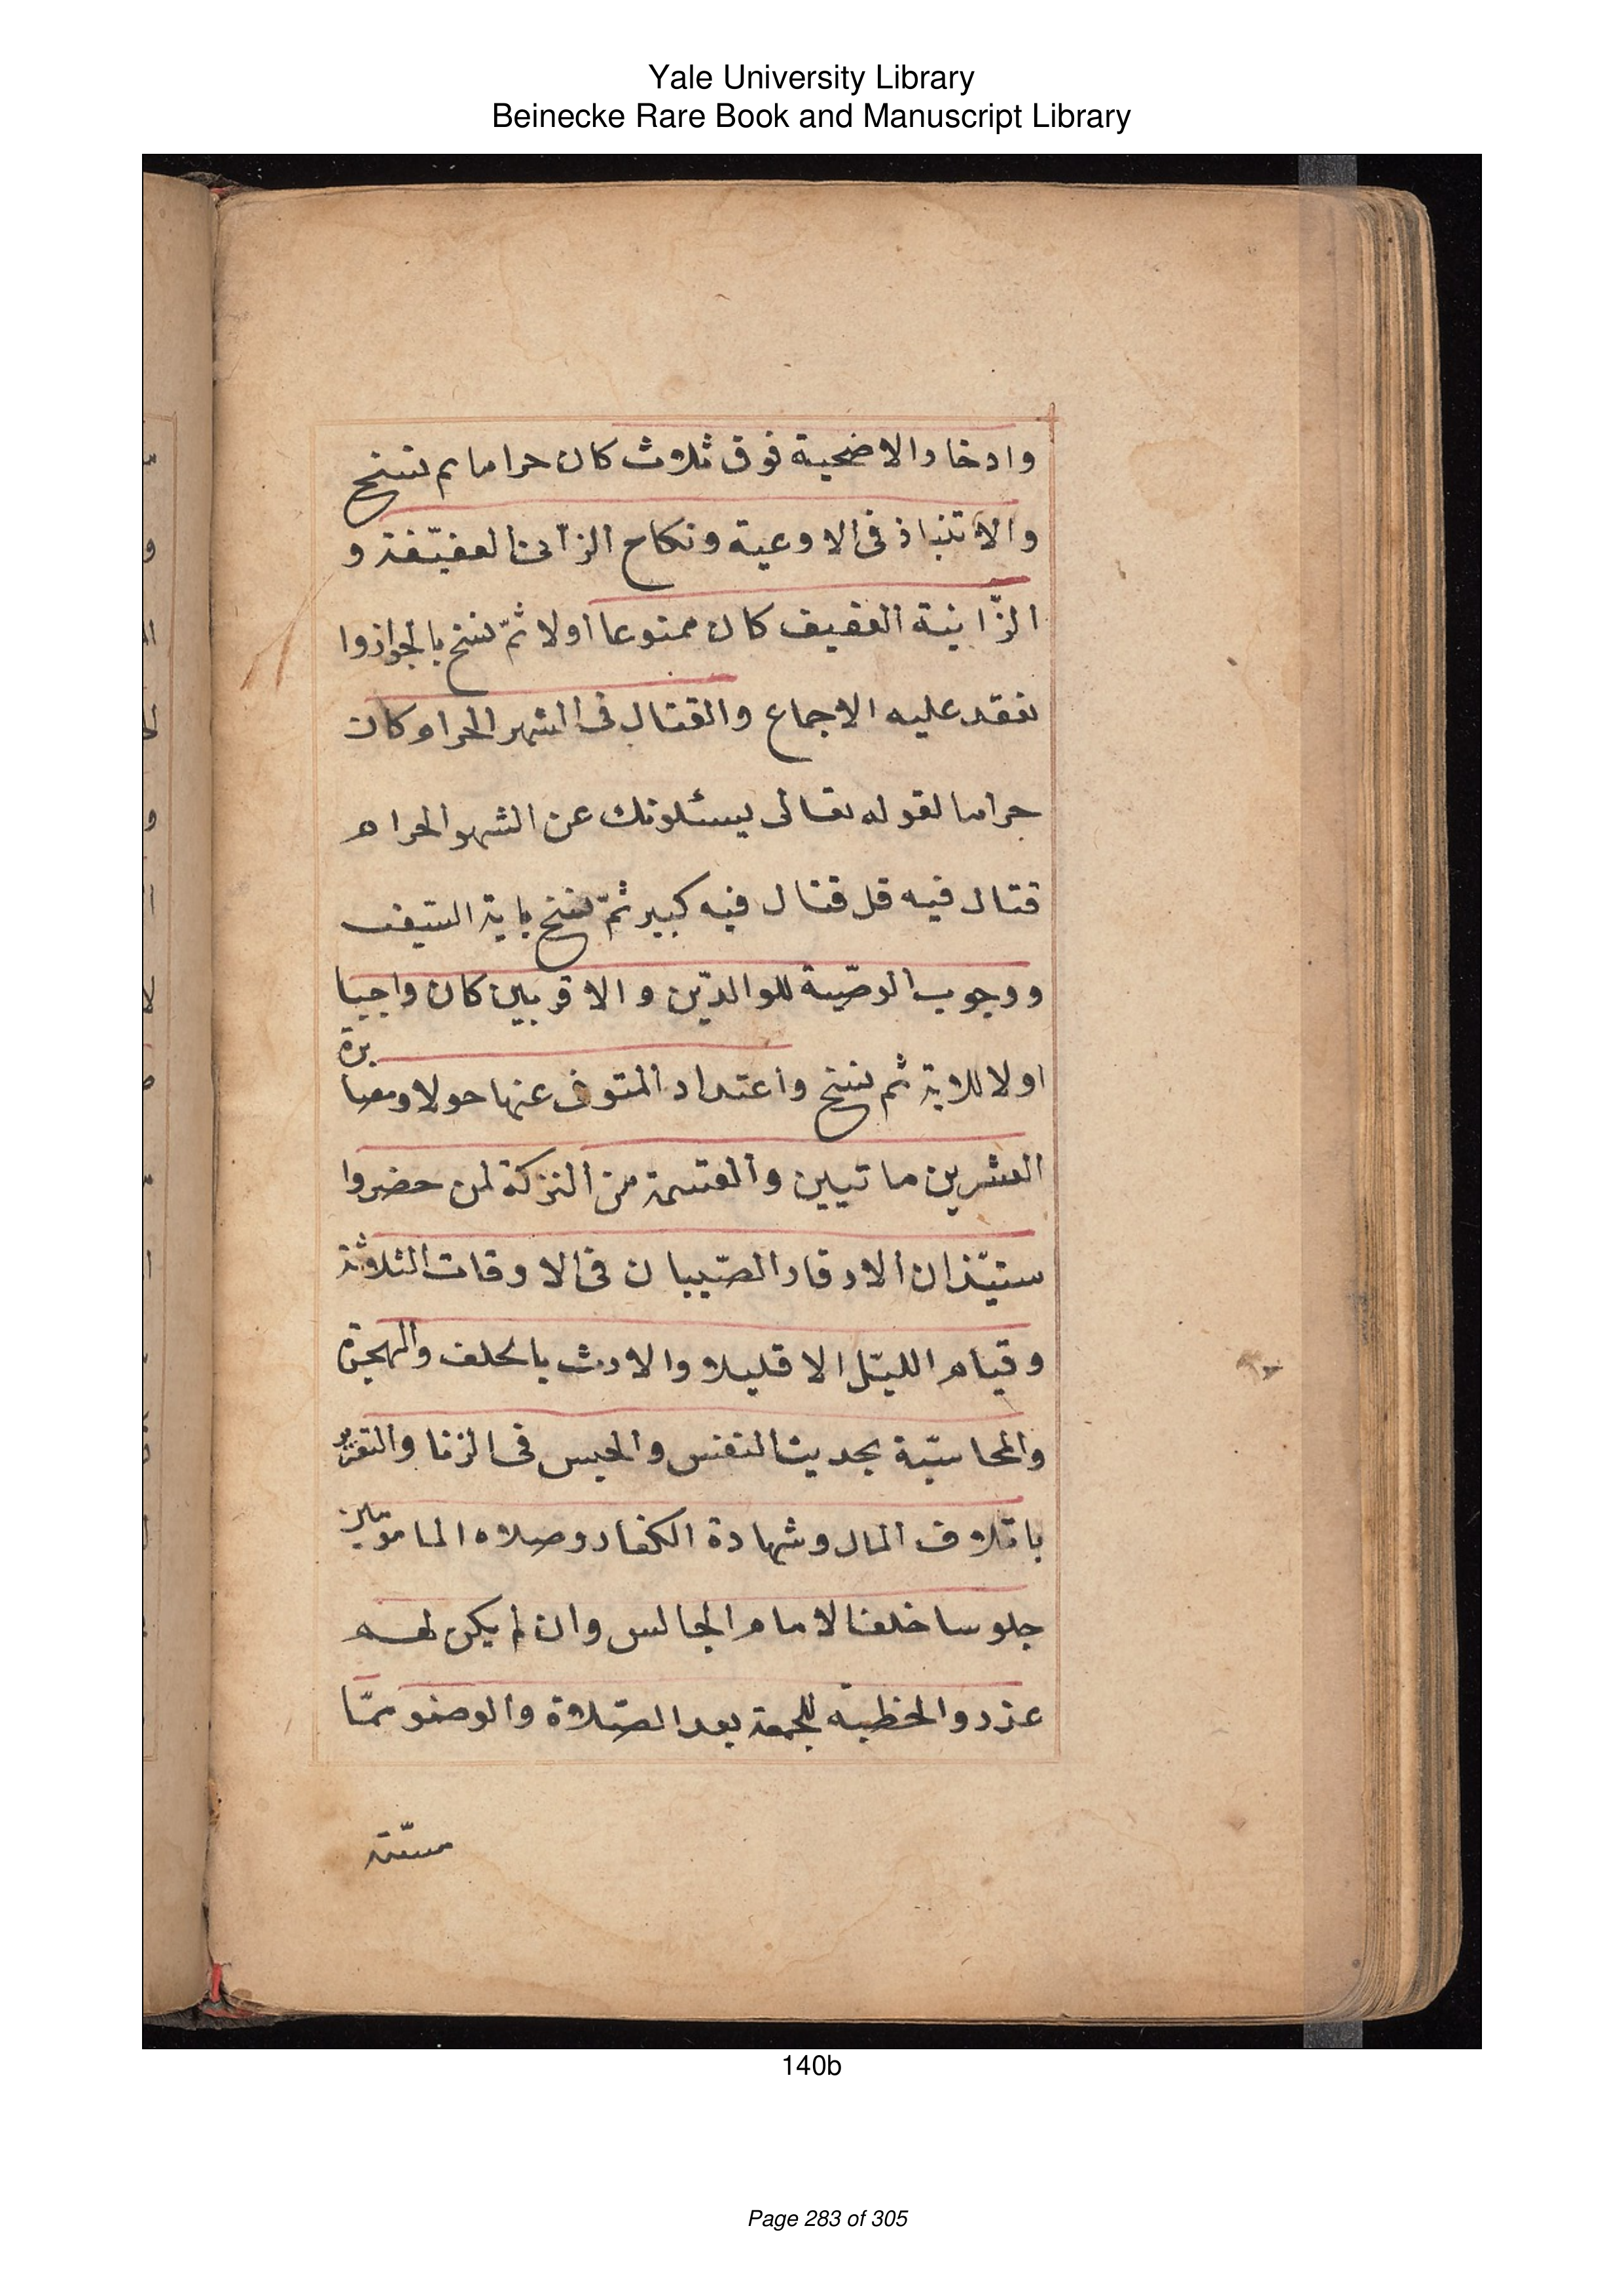 Yale University Library
Beinecke Rare Book and Manuscript Library
وادخار الاضحية فوق ثلاث كان حراما ثم نسخ
والانتباذ فى الاوعية ونكاح الزانى العفيفة و
الزّانية العفيف كان ممنوعا اولا ثمّ نسخ بالجواز وا
نعقد عليه الاجماع والقتال فى الشهر الحرام كان
حراما لقوله تعالى يسئلونك عن الشهر الحرام
قتال فيه قل قتال فيه كبير ثمّ نسخ باية السّيف
ووجوب الوصّية للوالدّين والاقربين كان واجبا
اولا للاية ثم نسخ واعتداد المتوفى عنها حولا ومصابرة
العشرين ماتيين والقسمة من التركة لمن حضر وا
ستيّذان الارقا والصّبيان فى الاوقات الثلاثة
وقيام الليّل الا قليلا والارث بالحلف والهجرة
والمحاسبّة بحديث النفس والحبس فى الزنا والتعزير
باتلاف المال وشهادة الكفار وصلاه المامومين
جلوسا خلف الامام الجالس وان لم يكن له
عذر والخطبة للجمعة بعد الصّلاة والوضو ممّا
مسّته
140b
Page 283 of 305